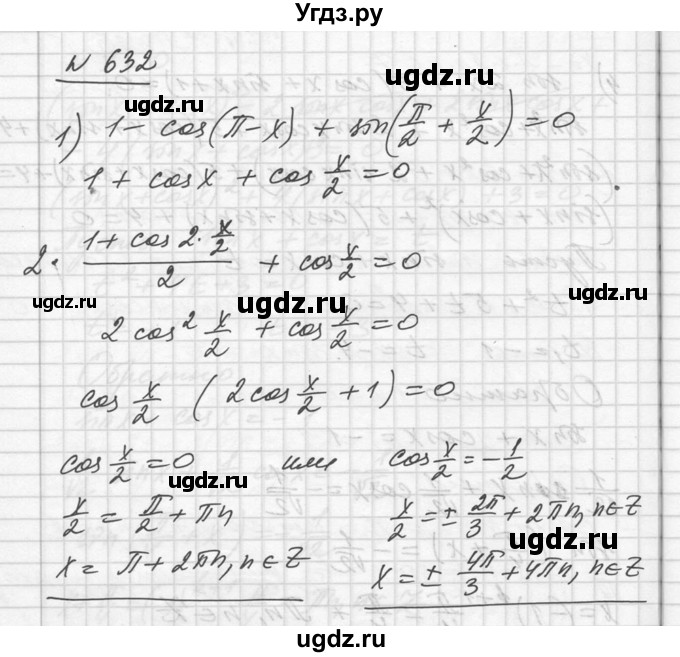 Угдз.ру
N 632
1) 1 - cos(π - x) + sin(π/2 + x/2) = 0
ugdz.ru
ugdz.ru
1 + cos x + cos x/2 = 0
2 · (1 + cos 2 · x/2)/2 + cos x/2 = 0
ugdz.ru ugdz.ru ugdz.ru
2 cos² x/2 + cos x/2 = 0
cos x/2 (2 cos x/2 + 1) = 0
ugdz.ru
cos x/2 = 0 или cos x/2 = - 1/2
ugdz.ru
x/2 = π/2 + πn x/2 = ± 2π/3 + 2πn, n ∈ Z
ugdz.ru ugdz.ru
x = π + 2πn, n ∈ Z x = ± 4π/3 + 4πn, n ∈ Z
ugdz.ru